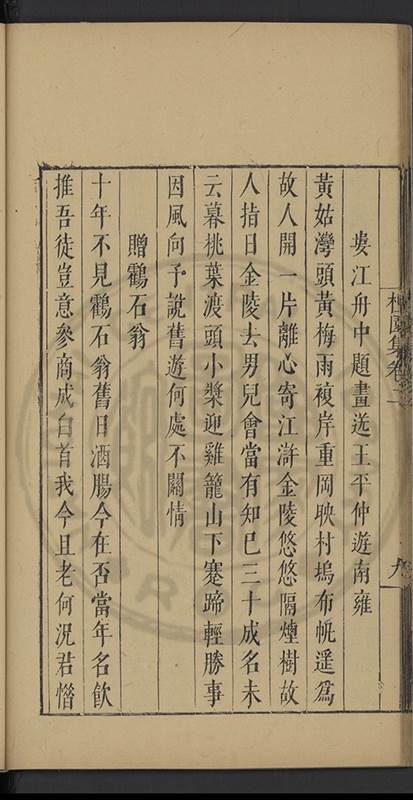 婁江舟中題畫送王平仲遊南雍
黃姑灣頭黃梅雨複岸重岡映村塢布帆遥爲
故人開一片離心寄江滸金陵悠悠隔煙樹故
人指日金陵去男兒會當有知己三十成名未
云暮桃葉渡頭小槳迎雞籠山下蹇蹄輕勝事
因風向予說舊遊何處不關情
贈鸛石翁
十年不見鸛石翁舊日酒腸今在否當年名飲
推吾徒豈意參商成白首我今且老何況君憯
園集卷
九